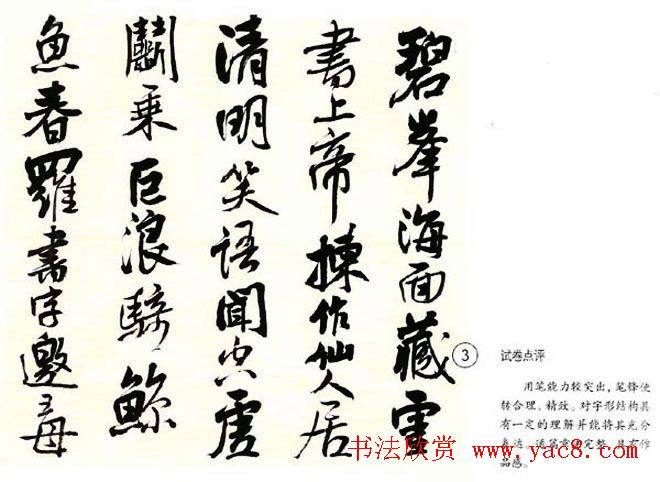 碧峯海面藏靈
書上帝揀作仙人居
清明笑語聞空虛
鬭乘巨浪騎鯨
魚春羅書字邀王母
3
试卷点评
用笔能力较突出，笔锋使
转合理、精致。对字形结构具
有一定的理解并能将其充分
表达，通篇章完整，具有作
品感。
书法欣赏 www.yac8.com